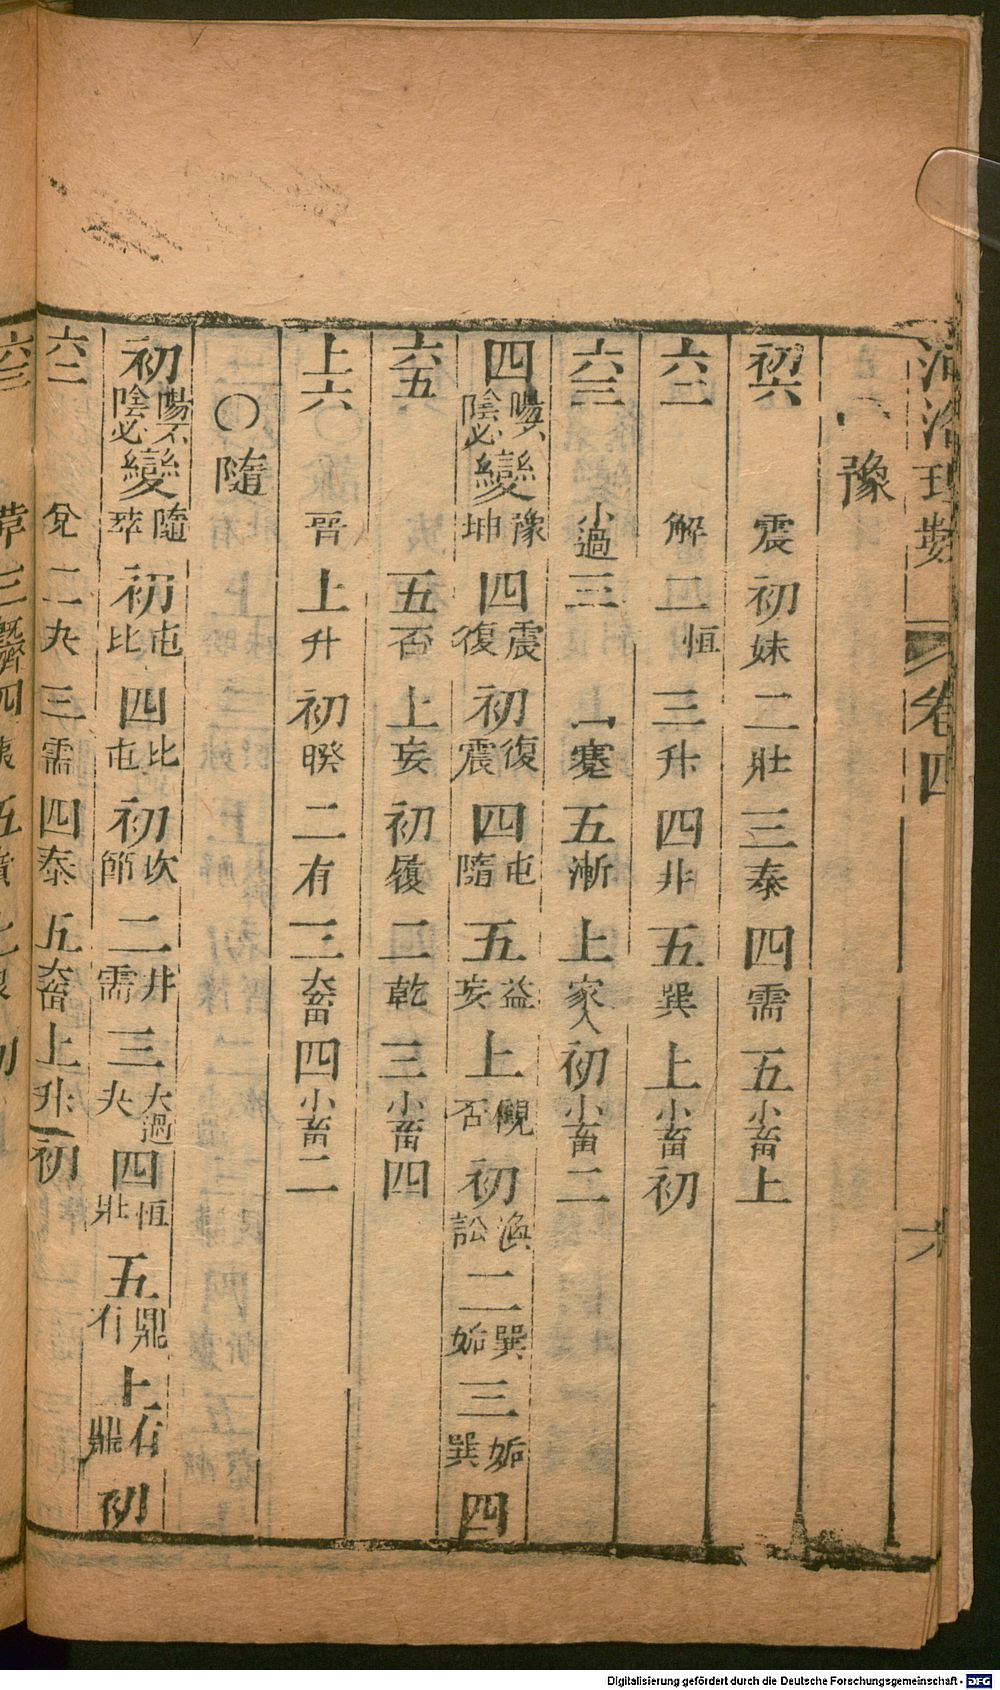 河洛理數 卷四 六
○豫
初六 震 初 妹 二 壯 三 泰 四 需 五 小畜 上
六二 解 二 恒 三 升 四 井 五 巽 上 小畜 初
六三 小過 三 蹇 五 漸 上 家人 初 小畜 二
四 陽不陰必 變 豫坤 四 震復 初 復震 四 屯隨 五 益妄 上 觀否 初 渙訟 二 巽姤 三 姤巽 四
六五 五 否 上 妄 初 履 二 乾 三 小畜 四
上六 晉 上 升 初 睽 二 有 三 大畜 四 小畜 二
○隨
初 陽不陰必 變 隨萃 初 屯比 四 比屯 初 坎節 二 井需 三 大過夬 四 恒壯 五 鼎有 上 有鼎 初
六二 兌 二 夬 三 需 四 泰 五 大畜 上 升 初